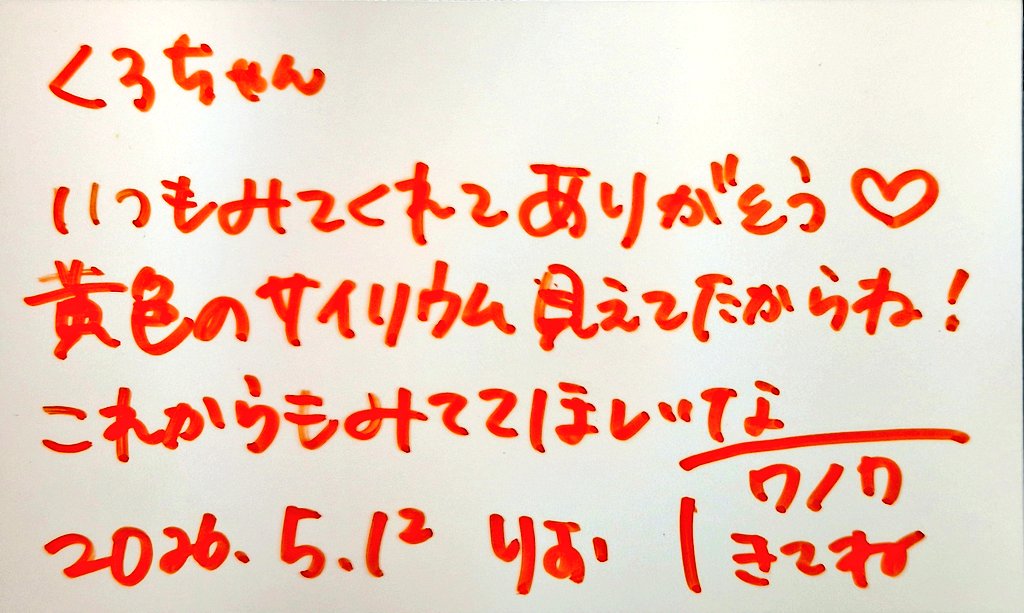 くろちゃん
いつもみてくれてありがとう♡
黄色のサイリウム見えてたからね!
これからもみててほしいな
2026.5.12 りお
ワノワ
きてね